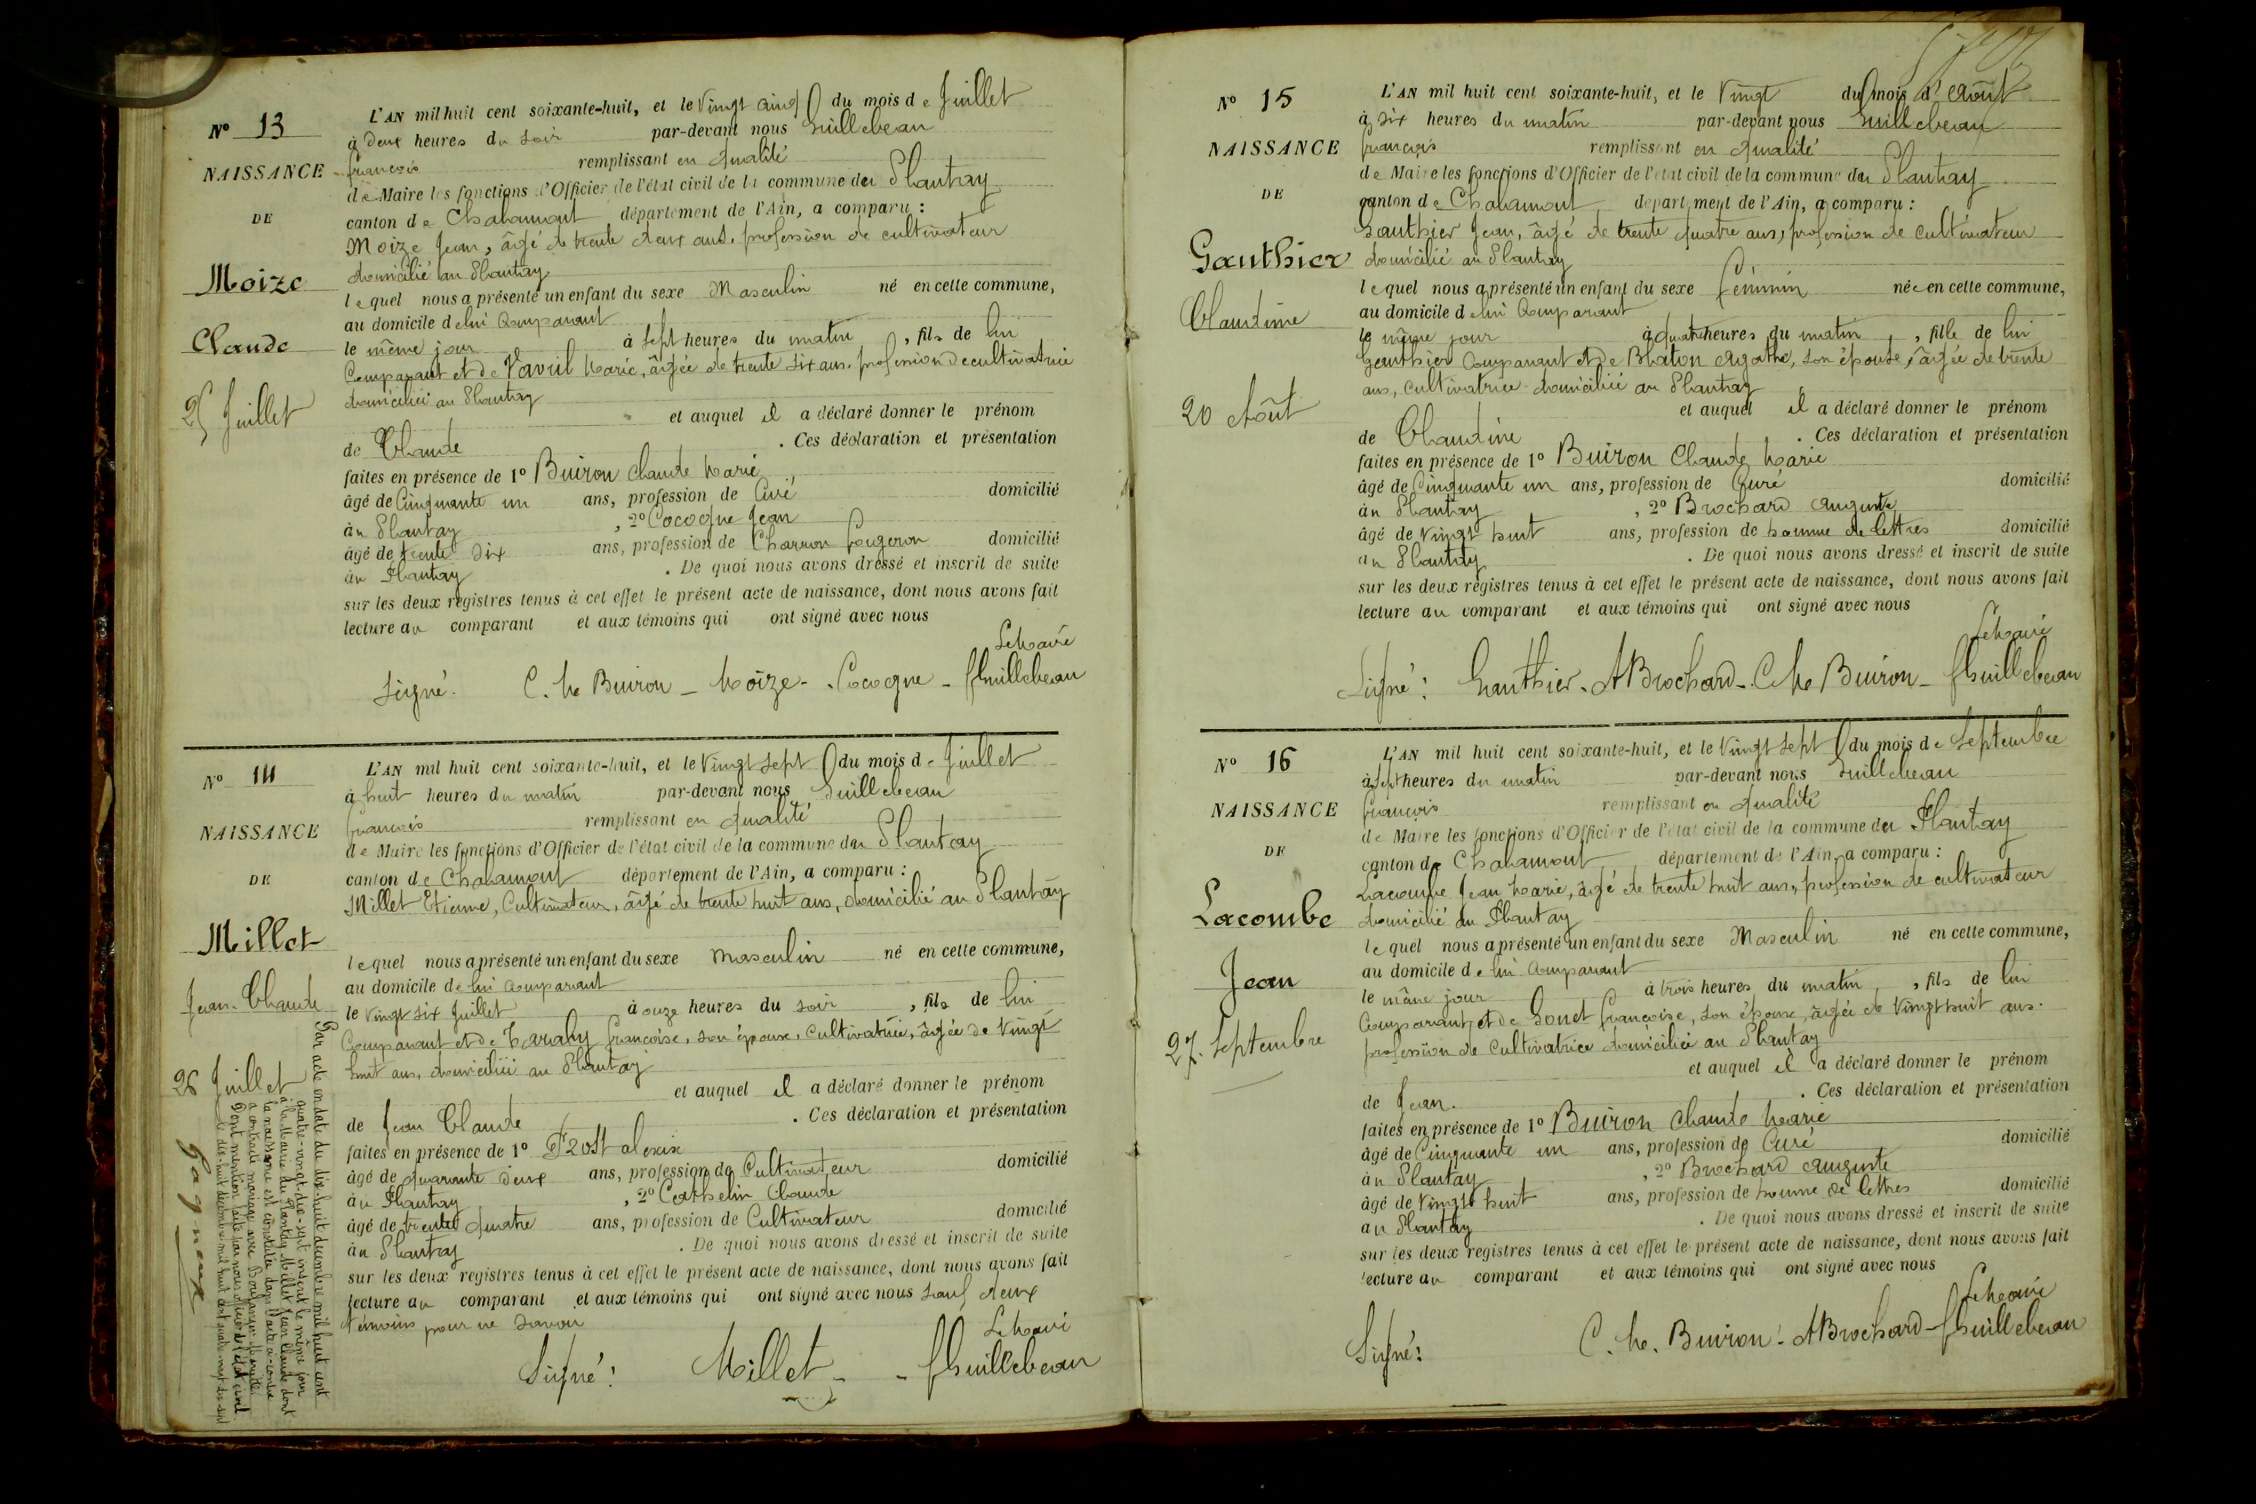 N° 13
NAISSANCE
DE
Moize
Claude
25 Juillet
L'AN mil huit cent soixante-huit, et le Vingt cinq du mois de Juillet
à Deux heures du soir par-devant nous Guillebeau
françois remplissant en qualité
de Maire les fonctions d'Officier de l'état civil de la commune du Plantay
canton de Chalamont département de l'Ain, a comparu :
Moize Jean, âgé de trente deux ans, profession de cultivateur
domicilié au Plantay
lequel nous a présenté un enfant du sexe Masculin né en cette commune,
au domicile de lui Comparant
le même jour à sept heures du matin, fils de lui
Comparant et de Vavril Marie, âgée de trente six ans, profession de cultivatrice
domiciliée au Plantay
et auquel il a déclaré donner le prénom
de Claude . Ces déclaration et présentation
faites en présence de 1° Buiron Claude Marie
âgé de Cinquante un ans, profession de Curé domicilié
au Plantay , 2° Cocogne Jean
âgé de trente six ans, profession de Charron forgeron domicilié
au Plantay . De quoi nous avons dressé et inscrit de suite
sur les deux registres tenus à cet effet le présent acte de naissance, dont nous avons fait
lecture au comparant et aux témoins qui ont signé avec nous
Le Maire
Signé. C. M Buiron - Moize - Cocogne - fGuillebeau
N° 14
NAISSANCE
DE
Millet
Jean-Claude
26 Juillet
Par acte en date du dix-huit décembre mil huit cent
quatre-vingt-dix-sept inscrit le même jour
à la Mairie du Plantay Millet Jean Claude dont
la naissance est constatée dans l'acte ci-contre
a contracté mariage avec
Dont mention faite par nous officier de l'état civil
le dix-huit décembre mil huit cent quatre-vingt-dix-sept
Gagneux
L'AN mil huit cent soixante-huit, et le Vingt sept du mois de Juillet
à huit heures du matin par-devant nous Guillebeau
françois remplissant en qualité
de Maire les fonctions d'Officier de l'état civil de la commune du Plantay
canton de Chalamont département de l'Ain, a comparu :
Millet Etienne, Cultivateur, âgé de trente huit ans, domicilié au Plantay
lequel nous a présenté un enfant du sexe masculin né en cette commune,
au domicile de lui comparant
le vingt six Juillet à onze heures du soir , fils de lui
Comparant et de françoise, son épouse, Cultivatrice, âgée de Vingt
huit ans, domiciliée au Plantay
et auquel il a déclaré donner le prénom
de Jean Claude . Ces déclaration et présentation
faites en présence de 1° alexis
âgé de quarante deux ans, profession de Cultivateur domicilié
au Plantay , 2° Cathelin Claude
âgé de trente quatre ans, profession de Cultivateur domicilié
au Plantay . De quoi nous avons dressé et inscrit de suite
sur les deux registres tenus à cet effet le présent acte de naissance, dont nous avons fait
lecture au comparant et aux témoins qui ont signé avec nous sauf deux
témoins pour ne savoir
Le Maire
Signé : Millet - - fGuillebeau
N° 15
NAISSANCE
DE
Gauthier
Claudine
20 Août
L'AN mil huit cent soixante-huit, et le Vingt du mois d'Août
à six heures du matin par-devant nous Guillebeau
françois remplissant en qualité
de Maire les fonctions d'Officier de l'état civil de la commune du Plantay
canton de Chalamont département de l'Ain, a comparu :
Gauthier Jean, âgé de trente quatre ans, profession de Cultivateur
domicilié au Plantay
lequel nous a présenté un enfant du sexe féminin née en cette commune,
au domicile de lui Comparant
le même jour à quatre heures du matin , fille de lui
Gauthier Comparant et de Blaton Agathe, son épouse, âgée de trente
ans, Cultivatrice domiciliée au Plantay
et auquel il a déclaré donner le prénom
de Claudine . Ces déclaration et présentation
faites en présence de 1° Buiron Claude Marie
âgé de Cinquante un ans, profession de Curé domicilié
au Plantay , 2° Brochard Auguste
âgé de vingt huit ans, profession de homme de lettres domicilié
au Plantay . De quoi nous avons dressé et inscrit de suite
sur les deux registres tenus à cet effet le présent acte de naissance, dont nous avons fait
lecture au comparant et aux témoins qui ont signé avec nous
Le Maire
Signé : Gauthier - ABrochard - C. M Buiron - fGuillebeau
N° 16
NAISSANCE
DE
Lacombe
Jean
27. Septembre
L'AN mil huit cent soixante-huit, et le Vingt sept du mois de Septembre
à sept heures du matin par-devant nous Guillebeau
françois remplissant en qualité
de Maire les fonctions d'Officier de l'état civil de la commune du Plantay
canton de Chalamont département de l'Ain, a comparu :
Lacombe Jean Marie, âgé de trente huit ans, profession de cultivateur
domicilié du Plantay
lequel nous a présenté un enfant du sexe Masculin né en cette commune,
au domicile de lui Comparant
le même jour à trois heures du matin , fils de lui
Comparant et de Gonet françoise, son épouse, âgée de Vingt huit ans.
profession de Cultivatrice domiciliée au Plantay
et auquel il a déclaré donner le prénom
de Jean. . Ces déclaration et présentation
faites en présence de 1° Buiron Claude Marie
âgé de Cinquante un ans, profession de Curé domicilié
au Plantay , 2° Brochard Auguste
âgé de Vingt huit ans, profession de homme de lettres domicilié
au Plantay . De quoi nous avons dressé et inscrit de suite
sur les deux registres tenus à cet effet le présent acte de naissance, dont nous avons fait
lecture au comparant et aux témoins qui ont signé avec nous
Le Maire
Signé : C. M. Buiron - ABrochard - fGuillebeau